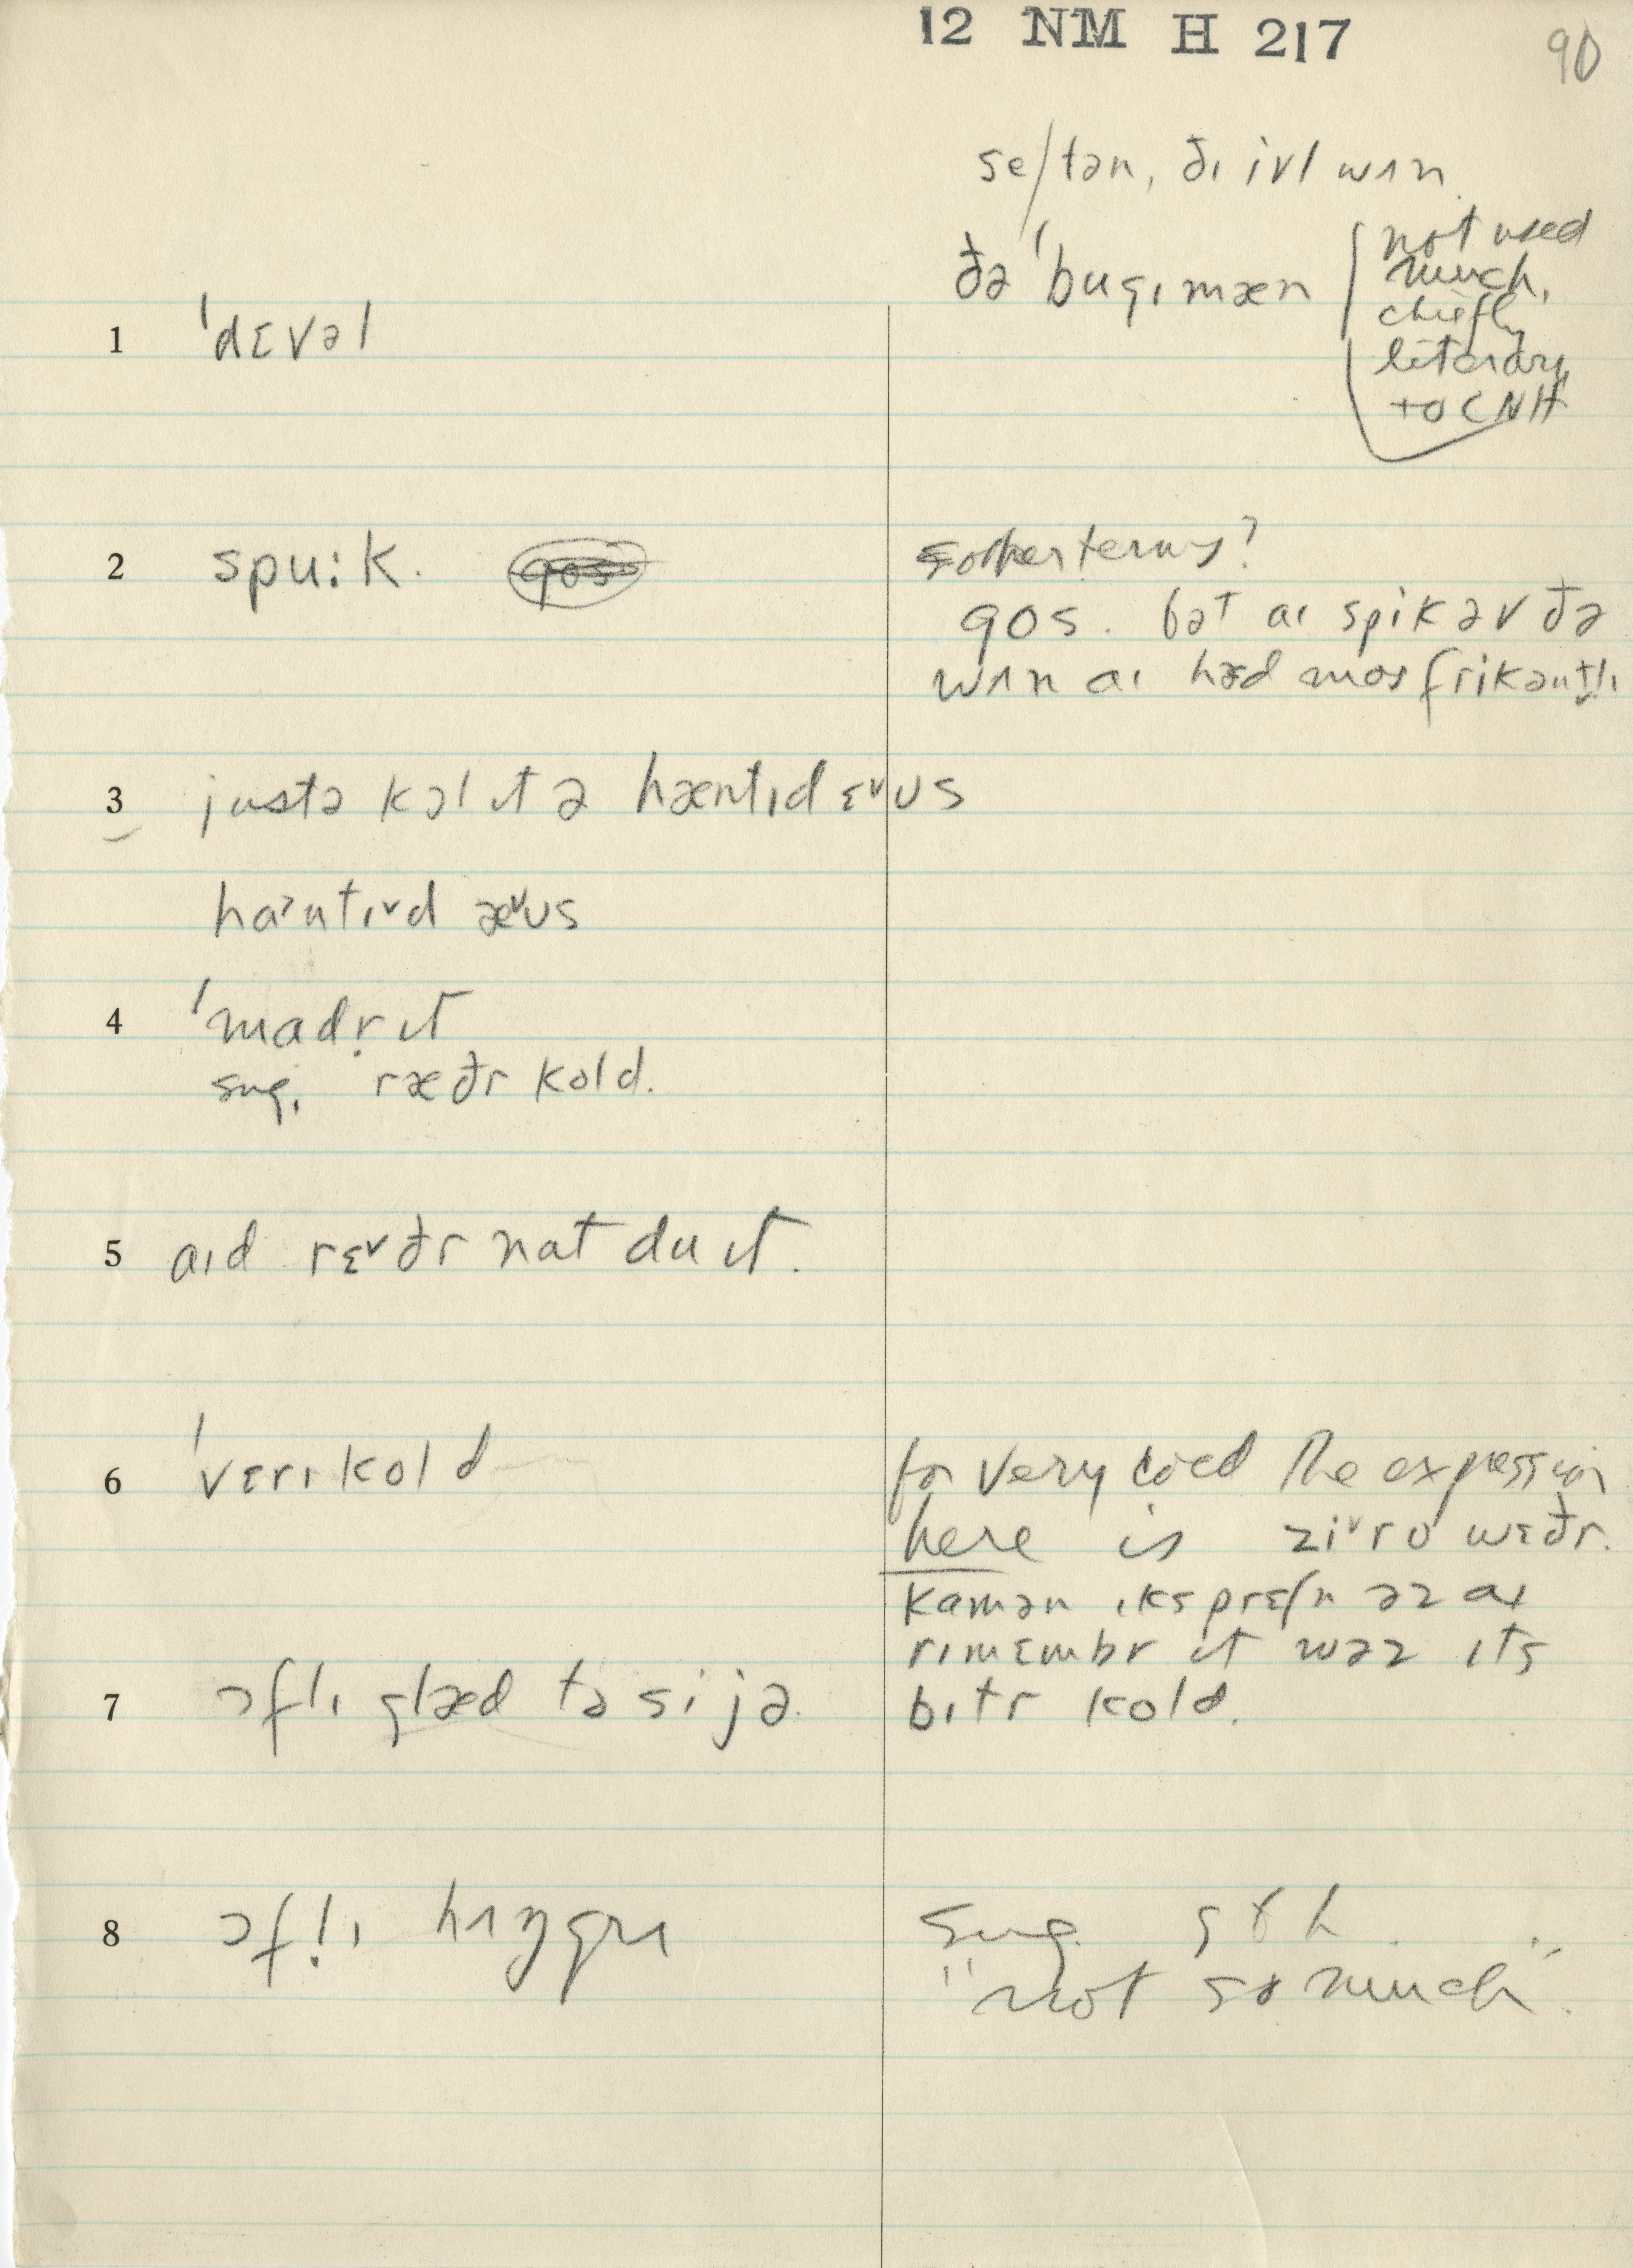 12 NM H 217
90
se/tən, ðɪ ivl wʌn
ðə ˈbugɪmæn
not used
much,
chiefly
literary
to CNH
1 ˈdɛvəl
2 spu:k.
other terms?
gos. bət aɪ spik əv ðə
wʌn aɪ hæd mos frikəntlɪ
3 justə kɔl ɪt ə hæntɪd ɛ˅ʊs
haˀntɪ˅d æ˅ʊs
4 ˈmadr̩ ɪt
sug. ræðr kold.
5 aɪd rɛ˅ðr nat du ɪt.
6 ˈvɛrɪ kold
for very cold the expression
here is zi˅ro wɛðr.
kamən ɪksprɛʃn əz aɪ
rɪmɛmbr ɪt wəz ɪts
bɪtr kold.
7 ɔflɪ glæd tə si jə.
8 ɔfl̩ɪ hʌŋgrɪ
sug.
"not so much".